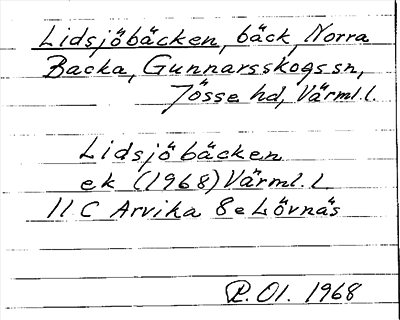 Lidsjöbäcken, bäck, Norra
Backa, Gunnarsskogs sn,
Jösse hd, Värml. l.
Lidsjöbäcken
ek (1968) Värml. l
11 C Arvika 8e Lövnäs
P.Ol. 1968